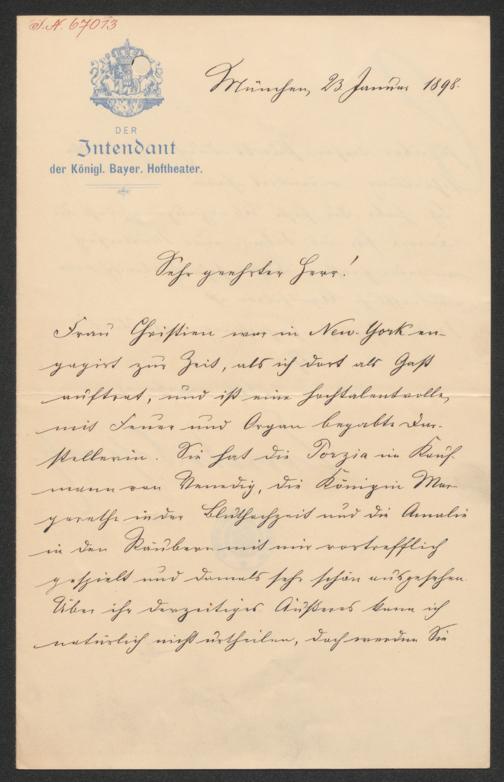 I. N. 67013
München, 23 Januar 1898.
DER
Intendant
der Königl. Bayer. Hoftheater.
Sehr geehrter Herr!
Frau Christien war in New-York en-
gagirt zur Zeit, als ich dort als Gast
auftrat, und ist eine hochtalentvolle,
mit Feuer und Organ begabte Dar-
stellerin. Sie hat die Porzia im Kauf-
mann von Venedig, die Königin Mar-
garethe in der Bluthochzeit und die Amalie
in den Räubern mit mir vortrefflich
gespielt und damals sehr schön ausgesehen.
Über ihr derzeitiges Äußeres kann ich
natürlich nicht urtheilen, doch werden Sie